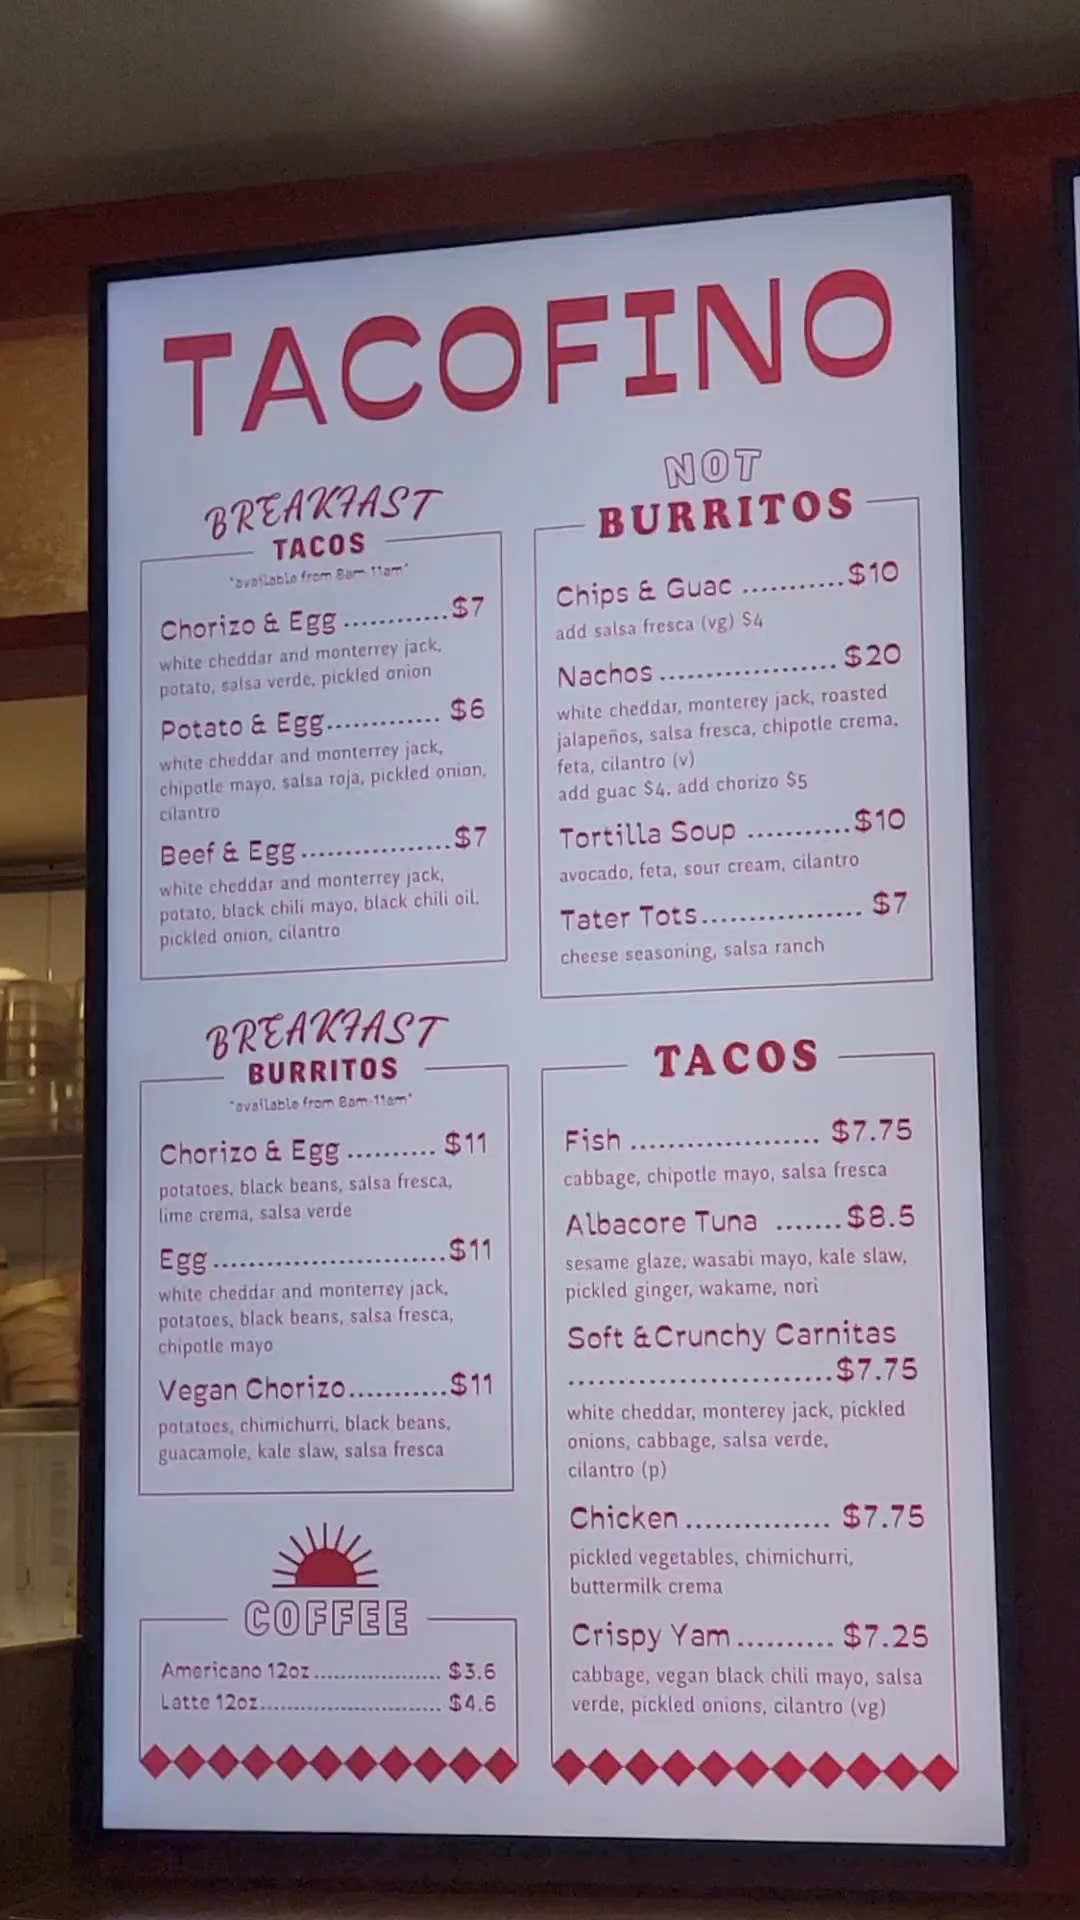 TACOFINO
BREAKFAST
TACOS
*available from 8am-11am*
Chorizo & Egg ............$7
white cheddar and monterrey jack,
potato, salsa verde, pickled onion
Potato & Egg............. $6
white cheddar and monterrey jack,
chipotle mayo, salsa roja, pickled onion,
cilantro
Beef & Egg.................$7
white cheddar and monterrey jack,
potato, black chili mayo, black chili oil,
pickled onion, cilantro
BREAKFAST
BURRITOS
*available from 8am-11am*
Chorizo & Egg .......... $11
potatoes, black beans, salsa fresca,
lime crema, salsa verde
Egg..........................$11
white cheddar and monterrey jack,
potatoes, black beans, salsa fresca,
chipotle mayo
Vegan Chorizo...........$11
potatoes, chimichurri, black beans,
guacamole, kale slaw, salsa fresca
COFFEE
Americano 12oz ..................... $3.6
Latte 12oz.............................. $4.6
NOT
BURRITOS
Chips & Guac ...........$10
add salsa fresca (vg) $4
Nachos .................. $20
white cheddar, monterey jack, roasted
jalapeños, salsa fresca, chipotle crema,
feta, cilantro (v)
add guac $4, add chorizo $5
Tortilla Soup ...........$10
avocado, feta, sour cream, cilantro
Tater Tots.................. $7
cheese seasoning, salsa ranch
TACOS
Fish ..................... $7.75
cabbage, chipotle mayo, salsa fresca
Albacore Tuna .......$8.5
sesame glaze, wasabi mayo, kale slaw,
pickled ginger, wakame, nori
Soft &Crunchy Carnitas
.............................$7.75
white cheddar, monterey jack, pickled
onions, cabbage, salsa verde,
cilantro (p)
Chicken ................ $7.75
pickled vegetables, chimichurri,
buttermilk crema
Crispy Yam .......... $7.25
cabbage, vegan black chili mayo, salsa
verde, pickled onions, cilantro (vg)